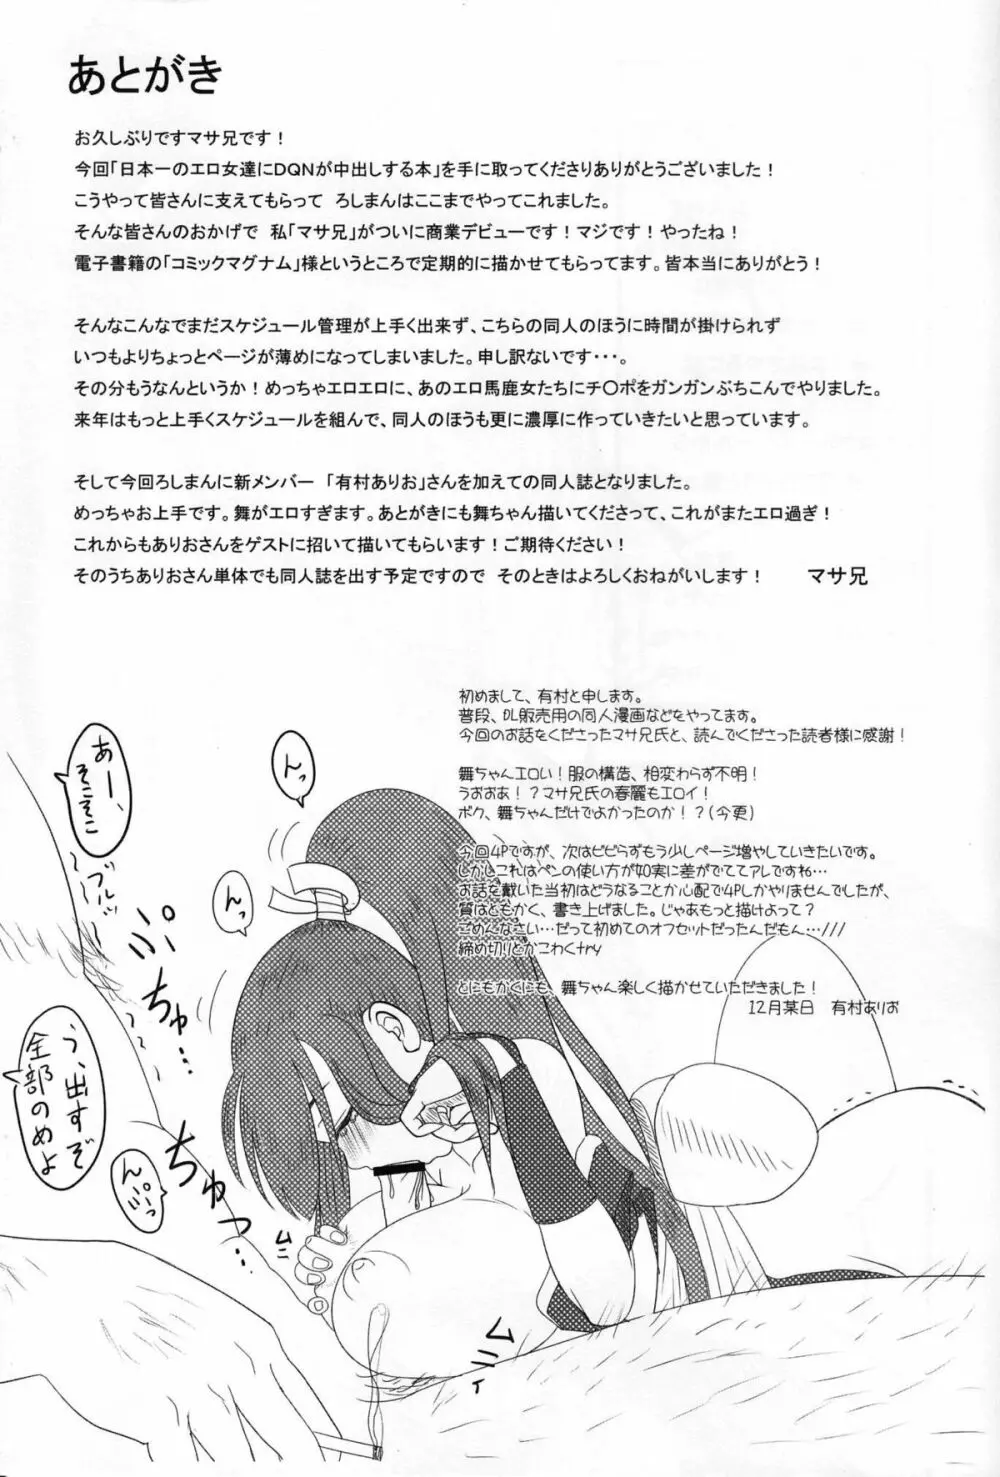 あとがき
お久しぶりですマサ兄です！
今回「日本一のエロ女達にDQNが中出しする本」を手に取ってくださりありがとうございました！
こうやって皆さんに支えてもらって　ろしまんはここまでやってこれました。
そんな皆さんのおかげで　私「マサ兄」がついに商業デビューです！マジです！やったね！
電子書籍の「コミックマグナム」様というところで定期的に描かせてもらってます。皆本当にありがとう！
そんなこんなでまだスケジュール管理が上手く出来ず、こちらの同人のほうに時間が掛けられず
いつもよりちょっとページが薄めになってしまいました。申し訳ないです・・・。
その分もうなんというか！めっちゃエロエロに、あのエロ馬鹿女たちにチ〇ポをガンガンぶちこんでやりました。
来年はもっと上手くスケジュールを組んで、同人のほうも更に濃厚に作っていきたいと思っています。
そして今回ろしまんに新メンバー　「有村ありお」さんを加えての同人誌となりました。
めっちゃお上手です。舞がエロすぎます。あとがきにも舞ちゃん描いてくださって、これがまたエロ過ぎ！
これからもありおさんをゲストに招いて描いてもらいます！ご期待ください！
そのうちありおさん単体でも同人誌を出す予定ですので　そのときはよろしくおねがいします！　　マサ兄
初めまして、有村と申します。
普段、DL販売用の同人漫画などをやってます。
今回のお話をくださったマサ兄氏と、読んでくださった読者様に感謝！
舞ちゃんエロい！服の構造、相変わらず不明！
うおおあ！？マサ兄氏の春麗もエロイ！
ボク、舞ちゃんだけでよかったのか！？(今更)
今回4Pですが、次はビビらずもう少しページ増やしていきたいです。
しかしこれはペンの使い方が如実に差がでててアレですね…
お話を戴いた当初はどうなることか心配で4Pしかやりませんでしたが、
質はともかく、書き上げました。じゃあもっと描けよって？
ごめんなさい…だって初めてのオフセットだったんだもん…///
締め切りとかこわくtry
とにもかくにも、舞ちゃん楽しく描かせていただきました！
12月某日　有村ありお
あー、
そこそこ
ブルッ
んっ
んっ
ぷぷ
ちゅ…
う、出すぞ
全部のめよ
ちゅっ…
ムニ
ムニィ